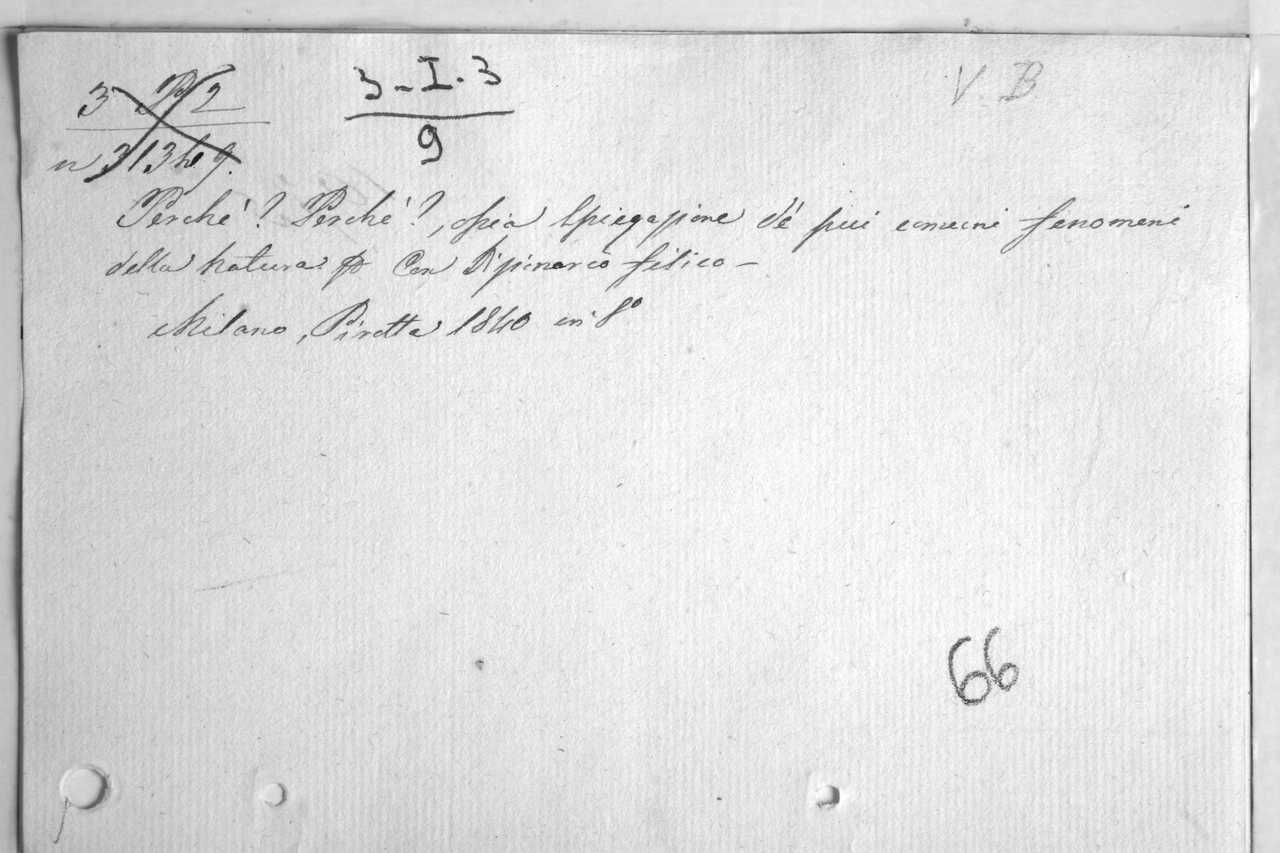 3-I-3
9
V. B
Perché? Perché?, ossia Spiegazione dé piu comuni fenomeni
della natura Con Dizionario fisico –
Milano, Pirotta 1840 in 8°
66